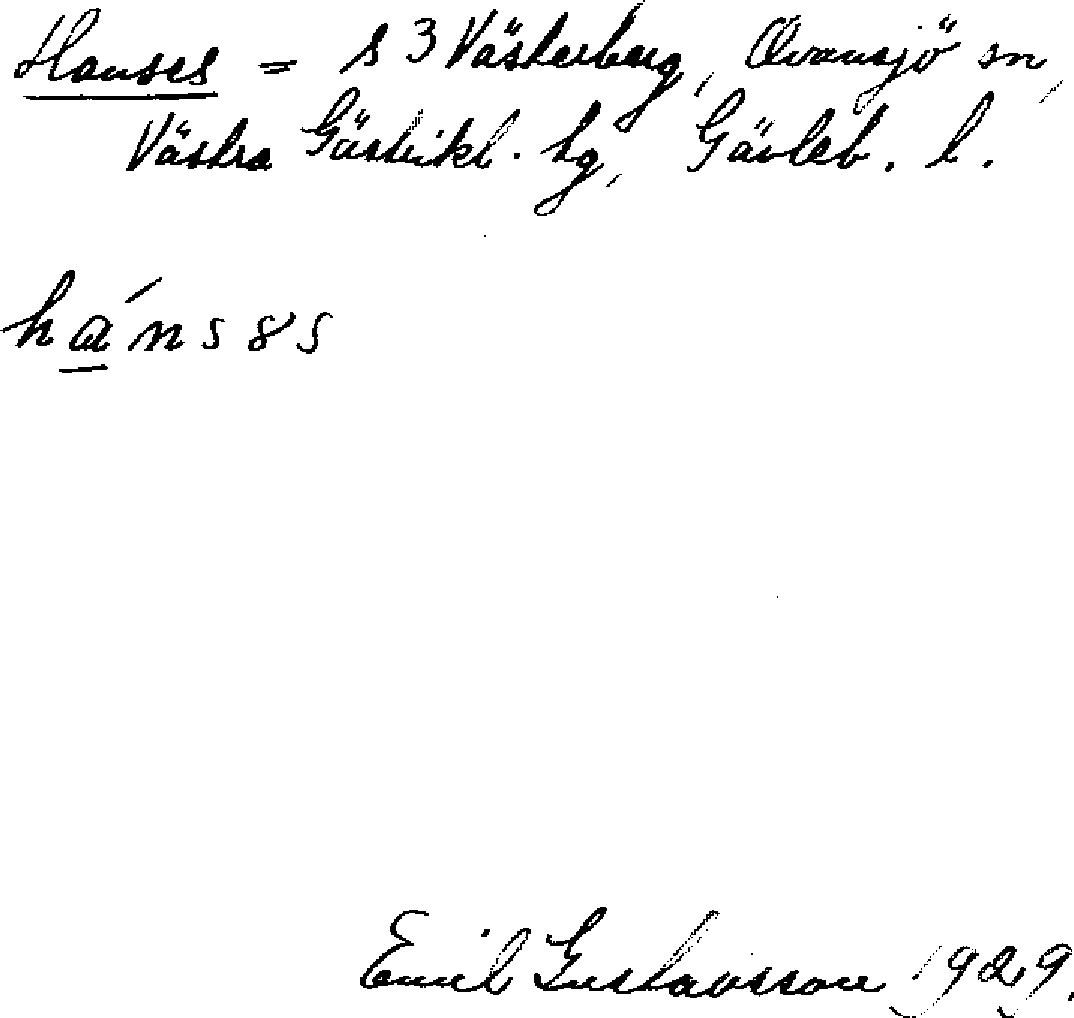 Hanses = s 3 Västerberg, Ovansjö sn,
Västra Gästrikl. tg, Gävleb. l.
hánsəs
Emil Gustavsson 1929.